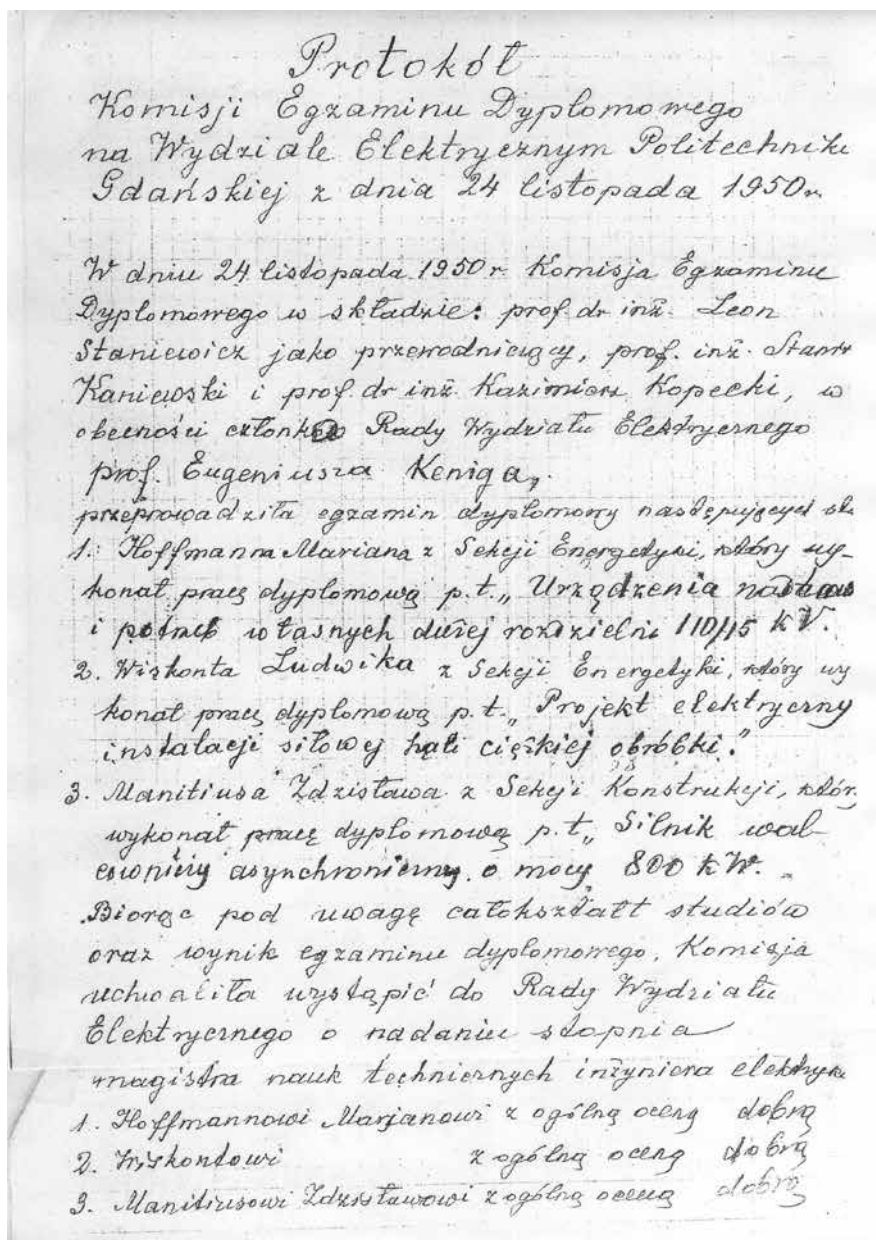 Protokół
Komisji Egzaminu Dyplomowego
na Wydziale Elektrycznym Politechniki
Gdańskiej z dnia 24 listopada 1950r.
W dniu 24 listopada 1950 r. Komisja Egzaminu
Dyplomowego w składzie: prof. dr inż. Leon
Staniewicz jako przewodniczący, prof. inż.
Kaniewski i prof dr inż. Kazimierz Kopecki, w
obecności członków Rady Wydziału Elektrycznego
prof. Eugeniusza Keniga,
przeprowadziła egzamin dyplomowy następujących
1. Hoffmanna Mariana z Sekcji Energetyki, który wy-
konał pracę dyplomową p.t. „Urządzenia
i potrzeb własnych dużej rozdzielni 110/15 kV.
2. Wiskonta Ludwika z Sekcji Energetyki, który wy
konał pracę dyplomową p.t. „Projekt elektryczny
instalacji siłowej hali ciężkiej obróbki."
3. Manitiusa Zdzisława z Sekcji Konstrukcji, któr
wykonał pracę dyplomową p.t. „Silnik wal-
cowniczy asynchroniczny o mocy 800 kW. "
Biorąc pod uwagę całokształt studiów
oraz wynik egzaminu dyplomowego, Komisja
uchwaliła wystąpić do Rady Wydziału
Elektrycznego o nadaniu stopnia
magistra nauk technicznych inżyniera elektryka
1. Hoffmannowi Marjanowi z ogólną oceną dobrą
2. Wiskontowi z ogólną oceną dobrą
3. Manitiusowi Zdzisławowi z ogólną oceną dobrą